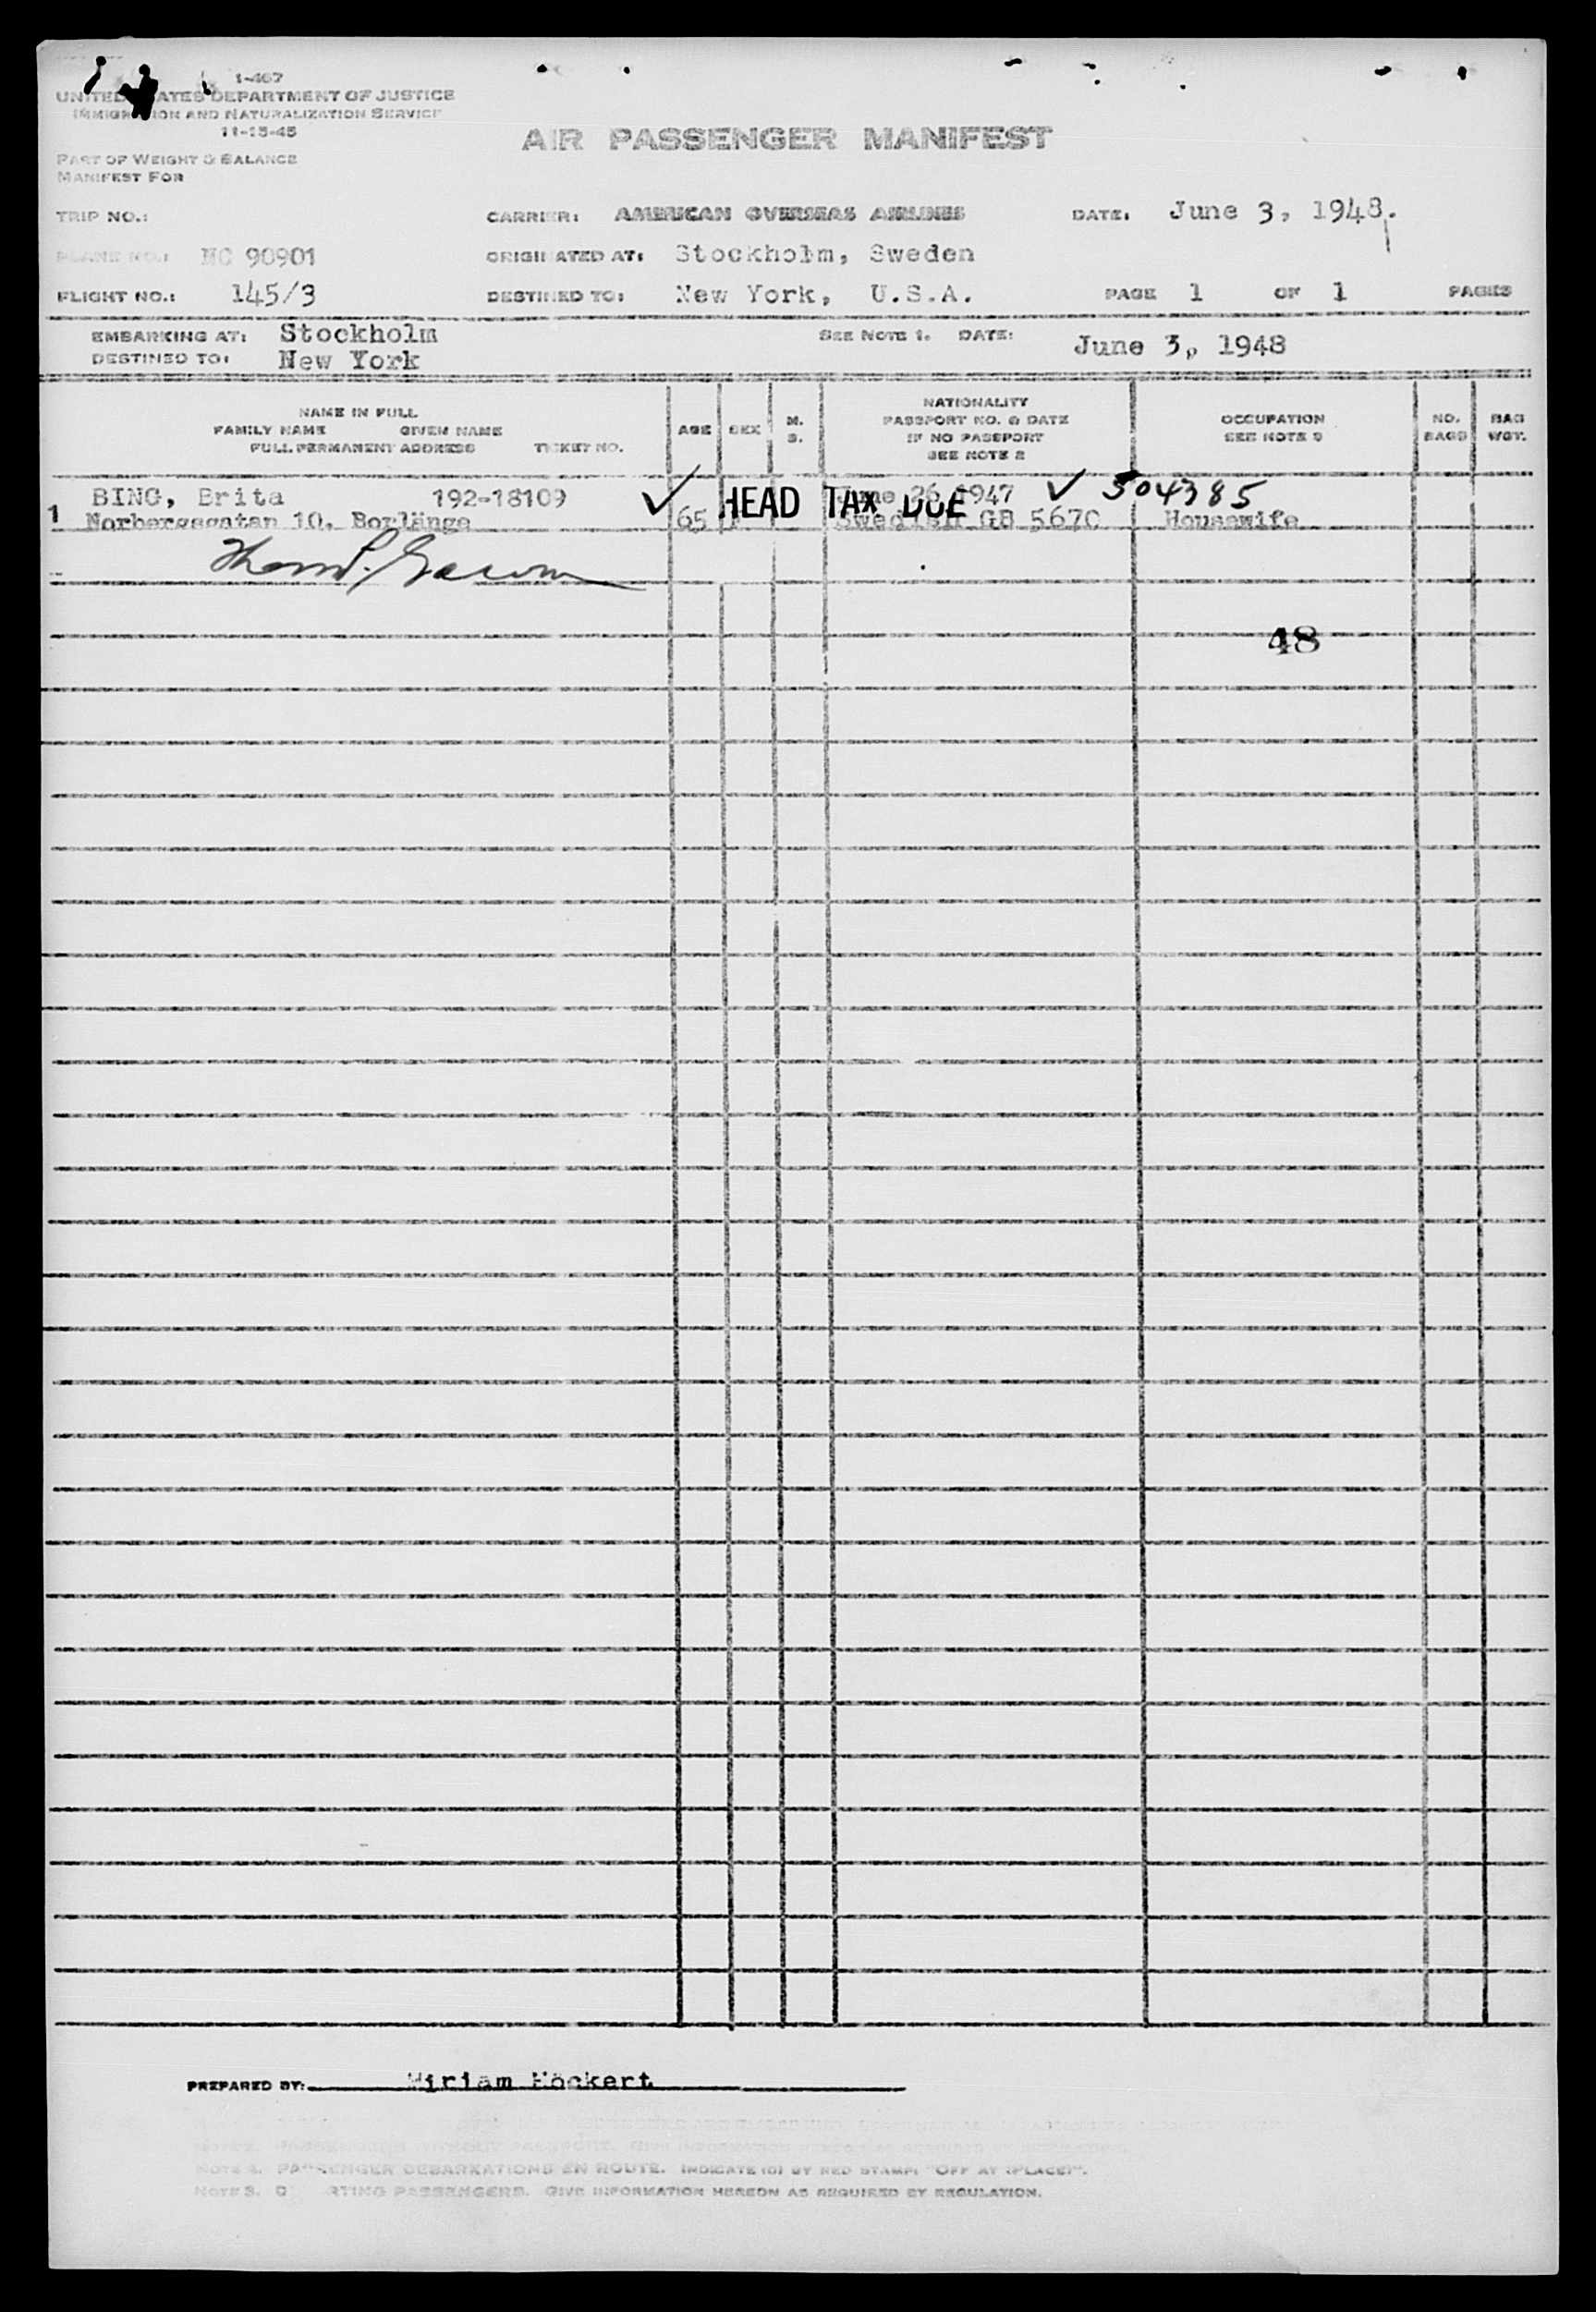 1-467
UNITED STATES DEPARTMENT OF JUSTICE
IMMIGRATION AND NATURALIZATION SERVICE
11-15-45
AIR PASSENGER MANIFEST
PART OF WEIGHT & BALANCE
MANIFEST FOR
TRIP NO.: CARRIER: AMERICAN OVERSEAS AIRLINES DATE: June 3, 1948.
PLANE NO.: NC 90901 ORIGINATED AT: Stockholm, Sweden
FLIGHT NO.: 145/3 DESTINED TO: New York, U.S.A. PAGE 1 OF 1 PAGES
EMBARKING AT: Stockholm SEE NOTE 1. DATE: June 3, 1948
DESTINED TO: New York
NAME IN FULL
FAMILY NAME GIVEN NAME
FULL PERMANENT ADDRESS TICKET NO.
AGE SEX M. S.
NATIONALITY
PASSPORT NO. & DATE
IF NO PASSPORT
SEE NOTE 2
OCCUPATION
SEE NOTE 3
NO. BAGS
BAG WGT.
BING, Brita 192-18109 June 26 1947 504385
1 Norbergsgatan 10, Borlänge 65 HEAD TAX DUE Swedish GB 5670 Housewife
48
PREPARED BY: Miriam Höckert
PASSENGER DEBARKATIONS EN ROUTE. INDICATE (D) BY RED STAMP: "OFF AT (PLACE)".
NOTE 3. RTING PASSENGERS. GIVE INFORMATION HEREON AS REQUIRED BY REGULATION.